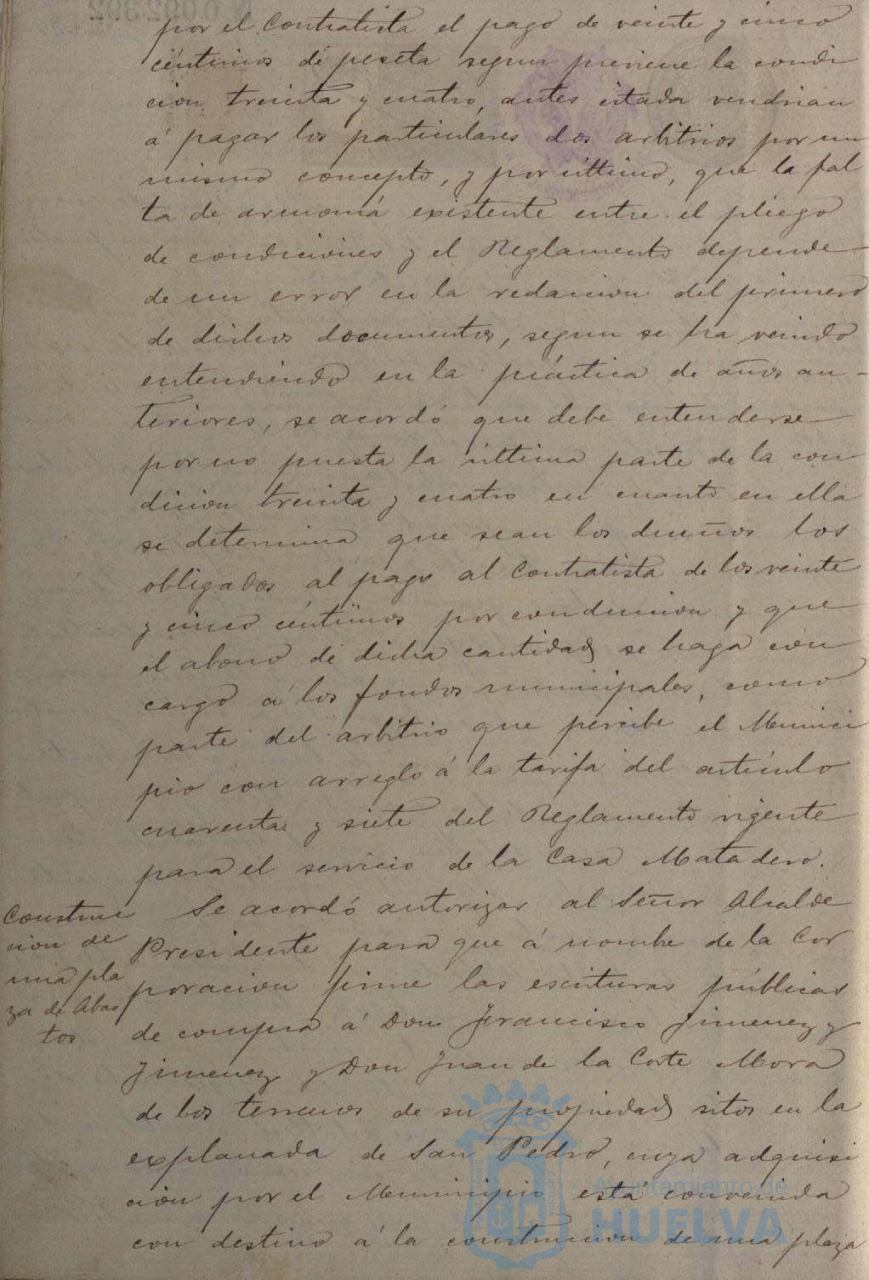 por el Contratista el pago de veinte y cinco
céntimos de peseta segun previene la condi
cion treinta y cuatro, antes citada vendrian
á pagar los particulares dos arbitrios por un
mismo concepto, y por último, que la fal
ta de armonía existente entre el pliego
de condiciones y el Reglamento depende
de un error en la redaccion del primero
de dichos documentos, segun se ha venido
entendiendo en la práctica de años an-
teriores, se acordó que debe entenderse
por no puesta la última parte de la con
dicion treinta y cuatro en cuanto en ella
se determina que sean los dueños los
obligados al pago al Contratista de los veinte
y cinco céntimos por conduccion y que
el abono de dicha cantidad se haga con
cargo á los fondos municipales, como
parte del arbitrio que percibe el Munici
pio con arreglo á la tarifa del artículo
cuarenta y siete del Reglamento vigente
para el servicio de la Casa Matadero.
Construc
cion de
una pla
za de Abas
tos
Se acordó autorizar al Señor Alcalde
Presidente para que á nombre de la Cor
poracion firme las escrituras públicas
de compra á Don Francisco Jimenez y
Jimenez y Don Juan de la Corte Mora
de los terrenos de su propiedad sitos en la
explanada de San Pedro, cuya adquisi
cion por el Municipio está convenida
con destino á la construccion de una plaza
Ayuntamiento de
HUELVA